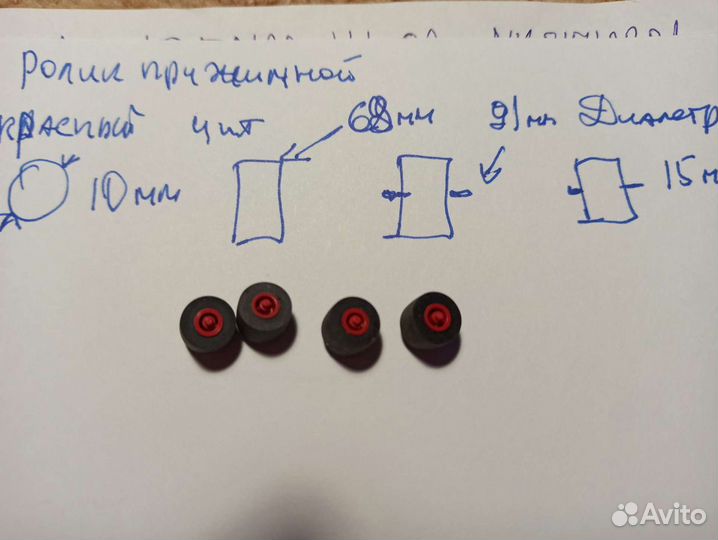 Ролик прижимной
красный 4 шт 68мм 91мм Диаметр
10мм 15м
Avito